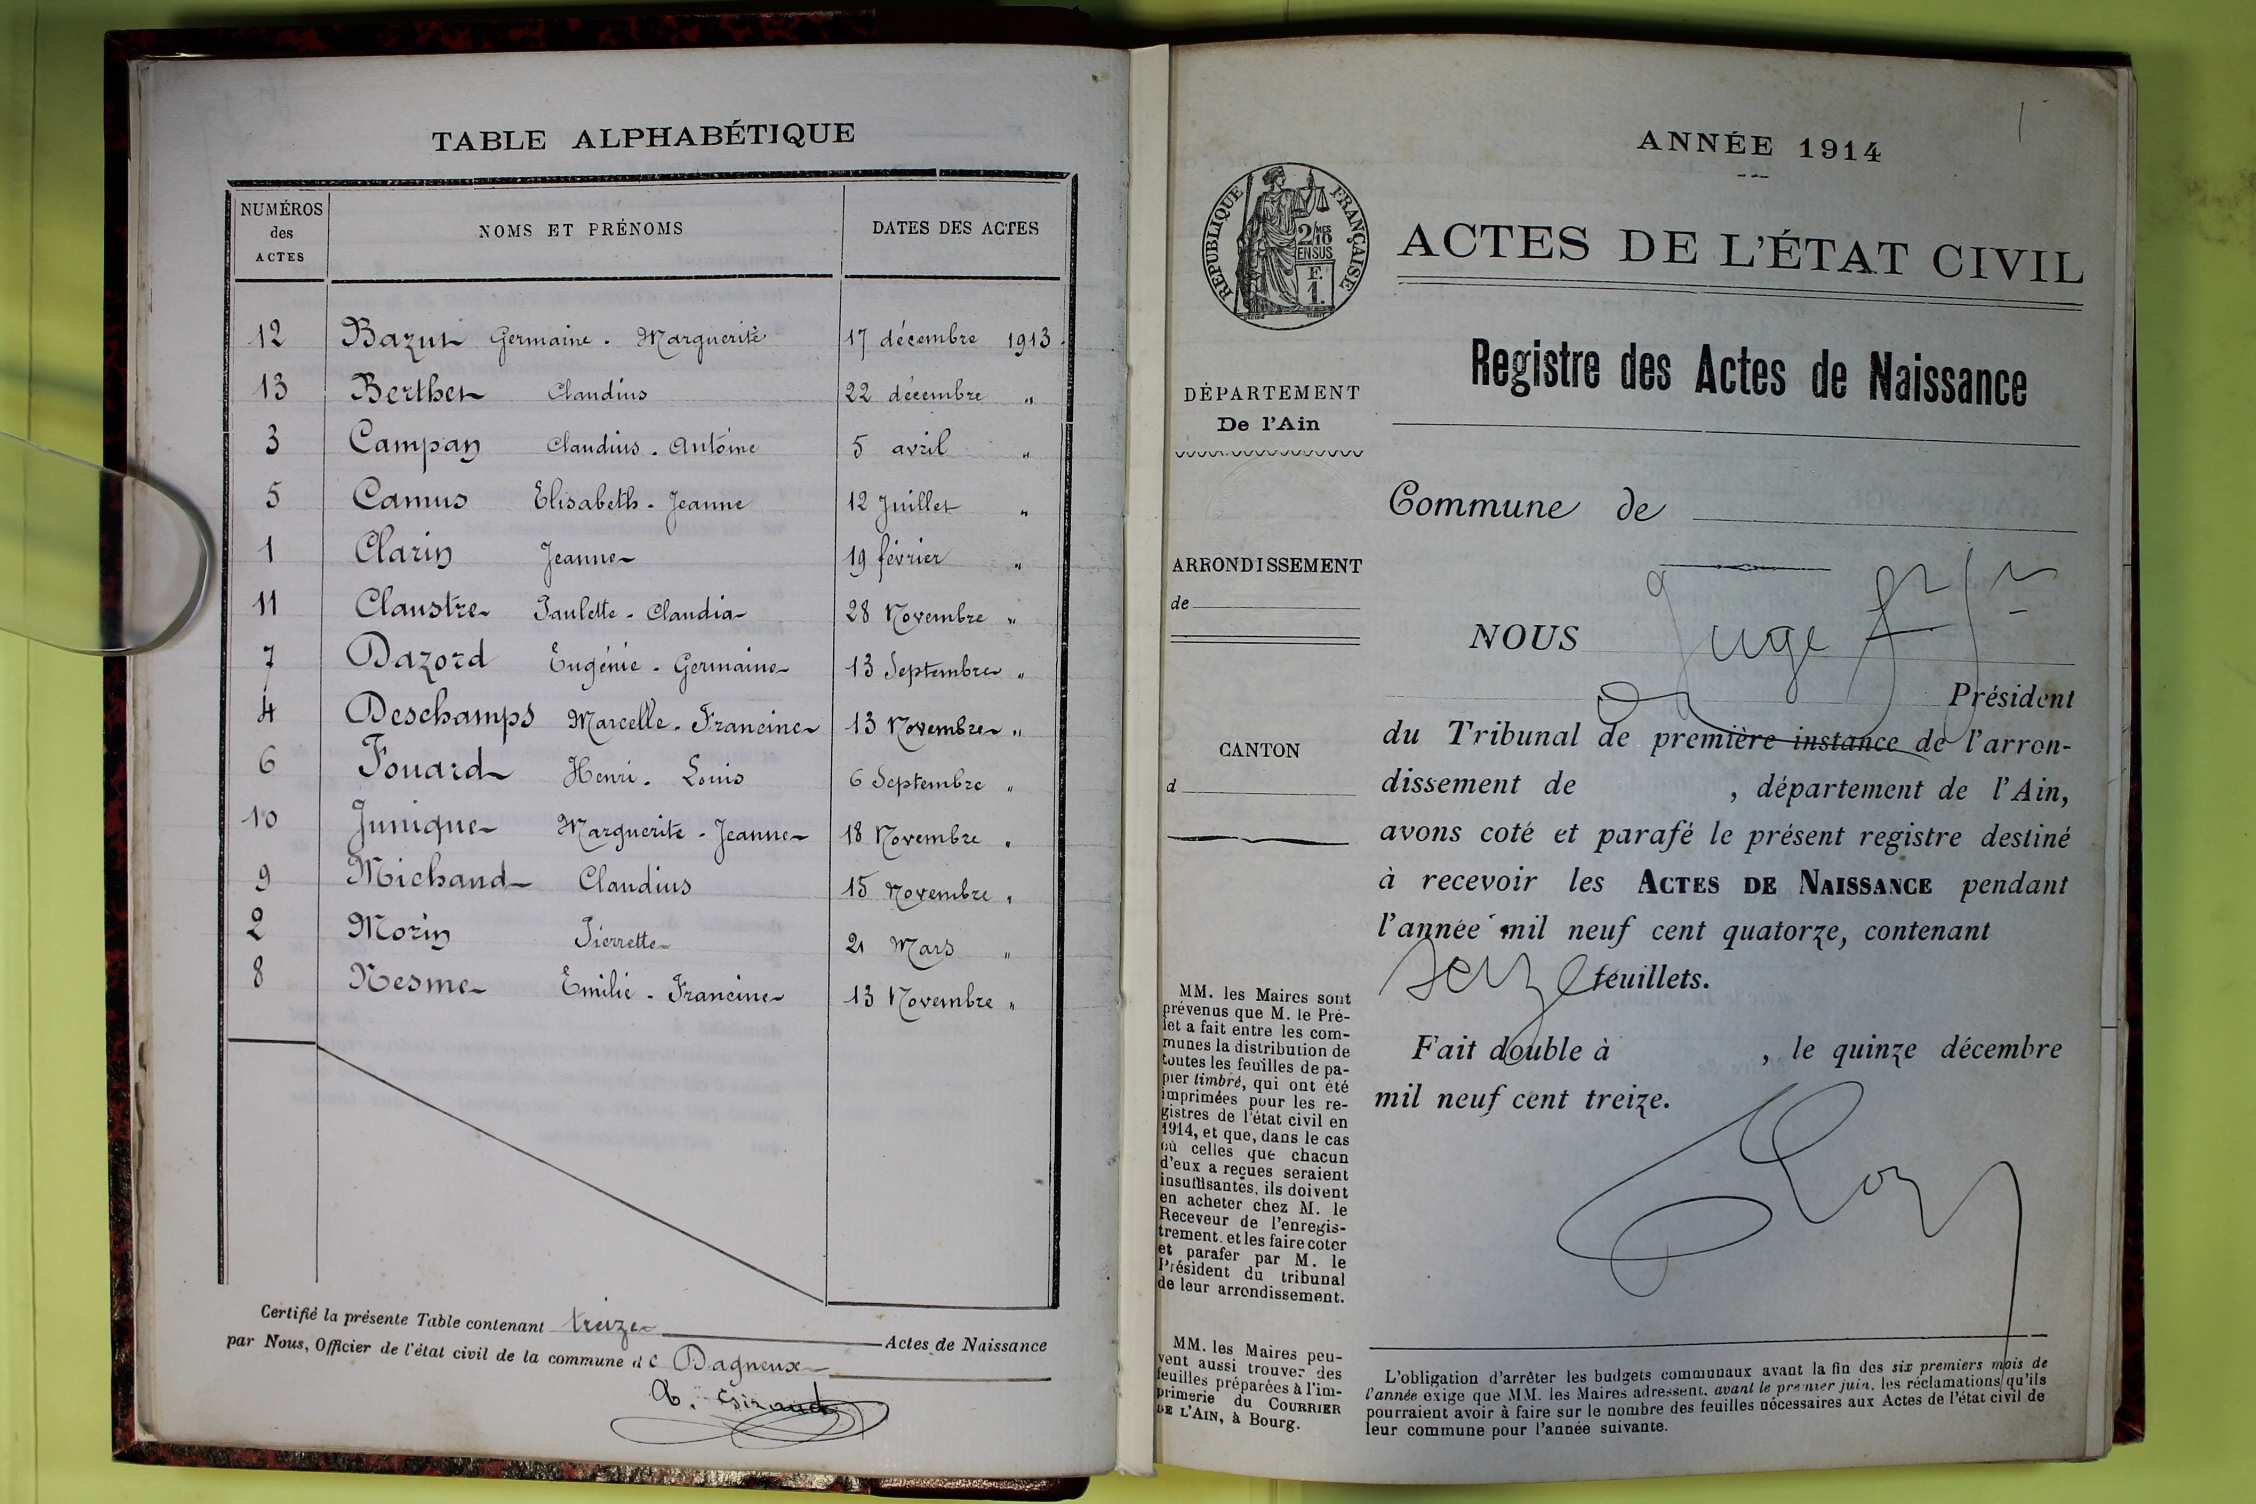 TABLE ALPHABÉTIQUE
NUMÉROS des ACTES
NOMS ET PRÉNOMS
DATES DES ACTES
12 Bazut Germaine . Marguerite 17 décembre 1913.
13 Berthet Claudius 22 décembre "
3 Campan Claudius . Antoine 5 avril "
5 Camus Elisabeth . Jeanne 12 Juillet "
1 Clarin Jeanne 19 février "
11 Claustre Paulette . Claudia 28 Novembre "
7 Dazord Eugénie . Germaine 13 Septembre "
4 Deschamps Marcelle . Francine 13 Novembre "
6 Fouard Henri . Louis 6 Septembre "
10 Junique Marguerite . Jeanne 18 Novembre "
9 Michaud Claudius 15 Novembre "
2 Morin Pierrette 21 Mars "
8 Nesme Emilie . Francine 13 Novembre "
Certifié la présente Table contenant treize Actes de Naissance
par Nous, Officier de l'état civil de la commune de Dagneux
Giraud
ANNÉE 1914
RÉPUBLIQUE FRANÇAISE
2/10MES
EN SUS
F.
1.
ACTES DE L'ÉTAT CIVIL
Registre des Actes de Naissance
DÉPARTEMENT
De l'Ain
Commune de
ARRONDISSEMENT
de
NOUS Juge
Président
du Tribunal de première instance de l'arron-
CANTON
d
dissement de , département de l'Ain,
avons coté et parafé le présent registre destiné
à recevoir les ACTES DE NAISSANCE pendant
l'année mil neuf cent quatorze, contenant
seize feuillets.
Fait double à , le quinze décembre
mil neuf cent treize.
MM. les Maires sont
prévenus que M. le Pré-
fet a fait entre les com-
munes la distribution de
toutes les feuilles de pa-
pier timbré, qui ont été
imprimées pour les re-
gistres de l'état civil en
1914, et que, dans le cas
où celles que chacun
d'eux a reçues seraient
insuffisantes, ils doivent
en acheter chez M. le
Receveur de l'enregis-
trement, et les faire coter
et parafer par M. le
Président du tribunal
de leur arrondissement.
MM. les Maires peu-
vent aussi trouver des
feuilles préparées à l'im-
primerie du COURRIER
DE L'AIN, à Bourg.
L'obligation d'arrêter les budgets communaux avant la fin des six premiers mois de
l'année exige que MM. les Maires adressent, avant le premier juin, les réclamations qu'ils
pourraient avoir à faire sur le nombre des feuilles nécessaires aux Actes de l'état civil de
leur commune pour l'année suivante.